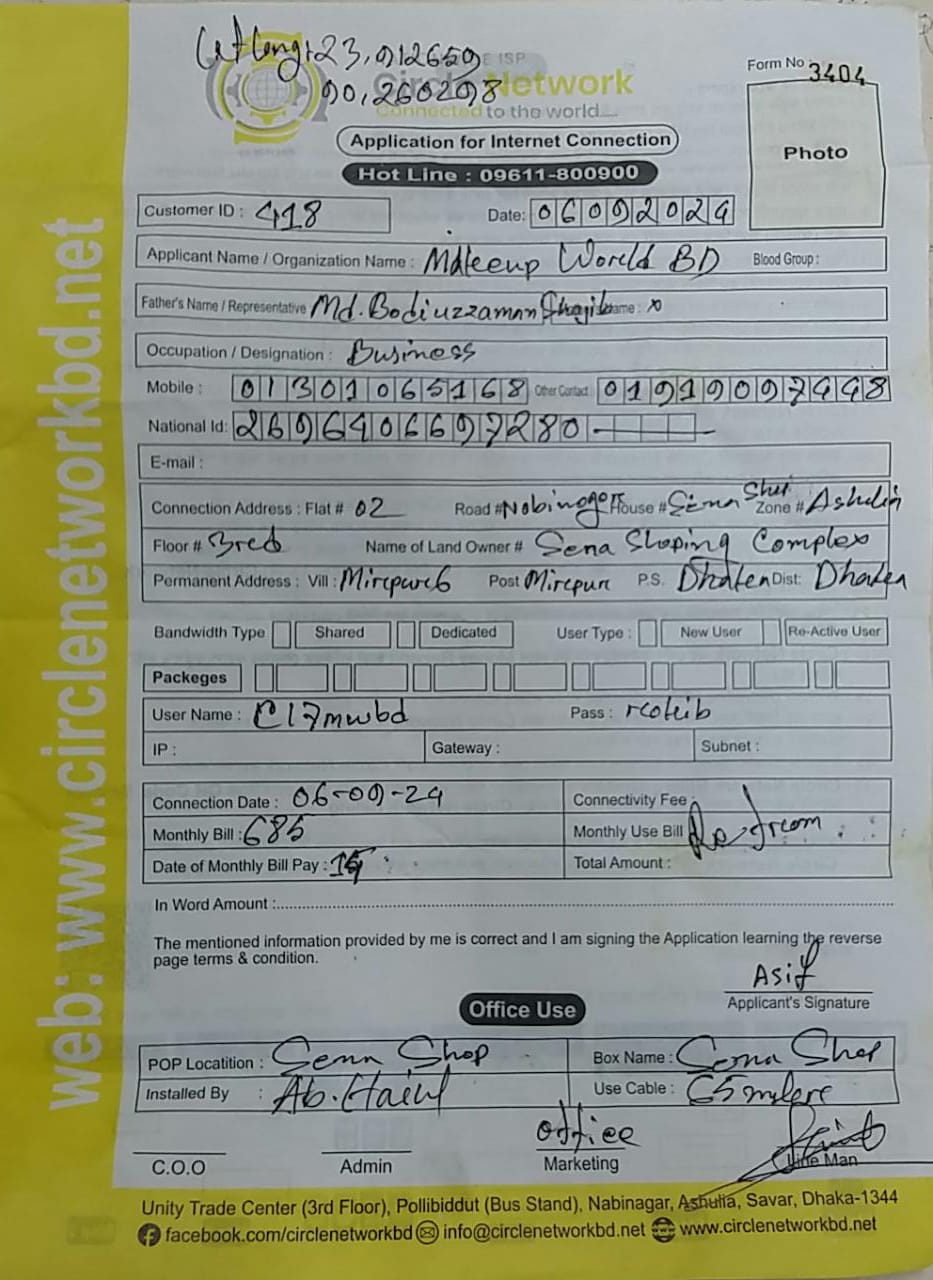 Let Long: 23,912659
90,260298
ISP
Circle Network
Connected to the world....
Form No : 3404
Photo
Application for Internet Connection
Hot Line : 09611-800900
Customer ID : 418
Date: 06092024
Applicant Name / Organization Name : Makeup World BD Blood Group :
Father's Name / Representative Md. Bodiuzzaman Shajib ame : x
Occupation / Designation : Business
Mobile : 01301065168 Other Contact 01919097448
National Id: 2696406697280
E-mail :
Connection Address : Flat # 02 Road # Nobinogor House # Sena Shop Zone # Ashulia
Floor # 3red Name of Land Owner # Sena Shoping Complex
Permanent Address : Vill : Mirepur6 Post Mirepur P.S. Dhaken Dist: Dhaken
Bandwidth Type Shared Dedicated User Type : New User Re-Active User
Packeges
User Name : C17mwbd Pass : rcokib
IP : Gateway : Subnet :
Connection Date : 06-09-24 Connectivity Fee :
Monthly Bill : 685 Monthly Use Bill
Date of Monthly Bill Pay : 15 Total Amount :
In Word Amount :
The mentioned information provided by me is correct and I am signing the Application learning the reverse
page terms & condition.
Asif
Applicant's Signature
Office Use
POP Locatition : Sena Shop Box Name : Sena Shop
Installed By : Ab. Use Cable : 65
office
C.O.O Admin Marketing Line Man
Unity Trade Center (3rd Floor), Pollibiddut (Bus Stand), Nabinagar, Ashulia, Savar, Dhaka-1344
facebook.com/circlenetworkbd info@circlenetworkbd.net www.circlenetworkbd.net
web: www.circlenetworkbd.net